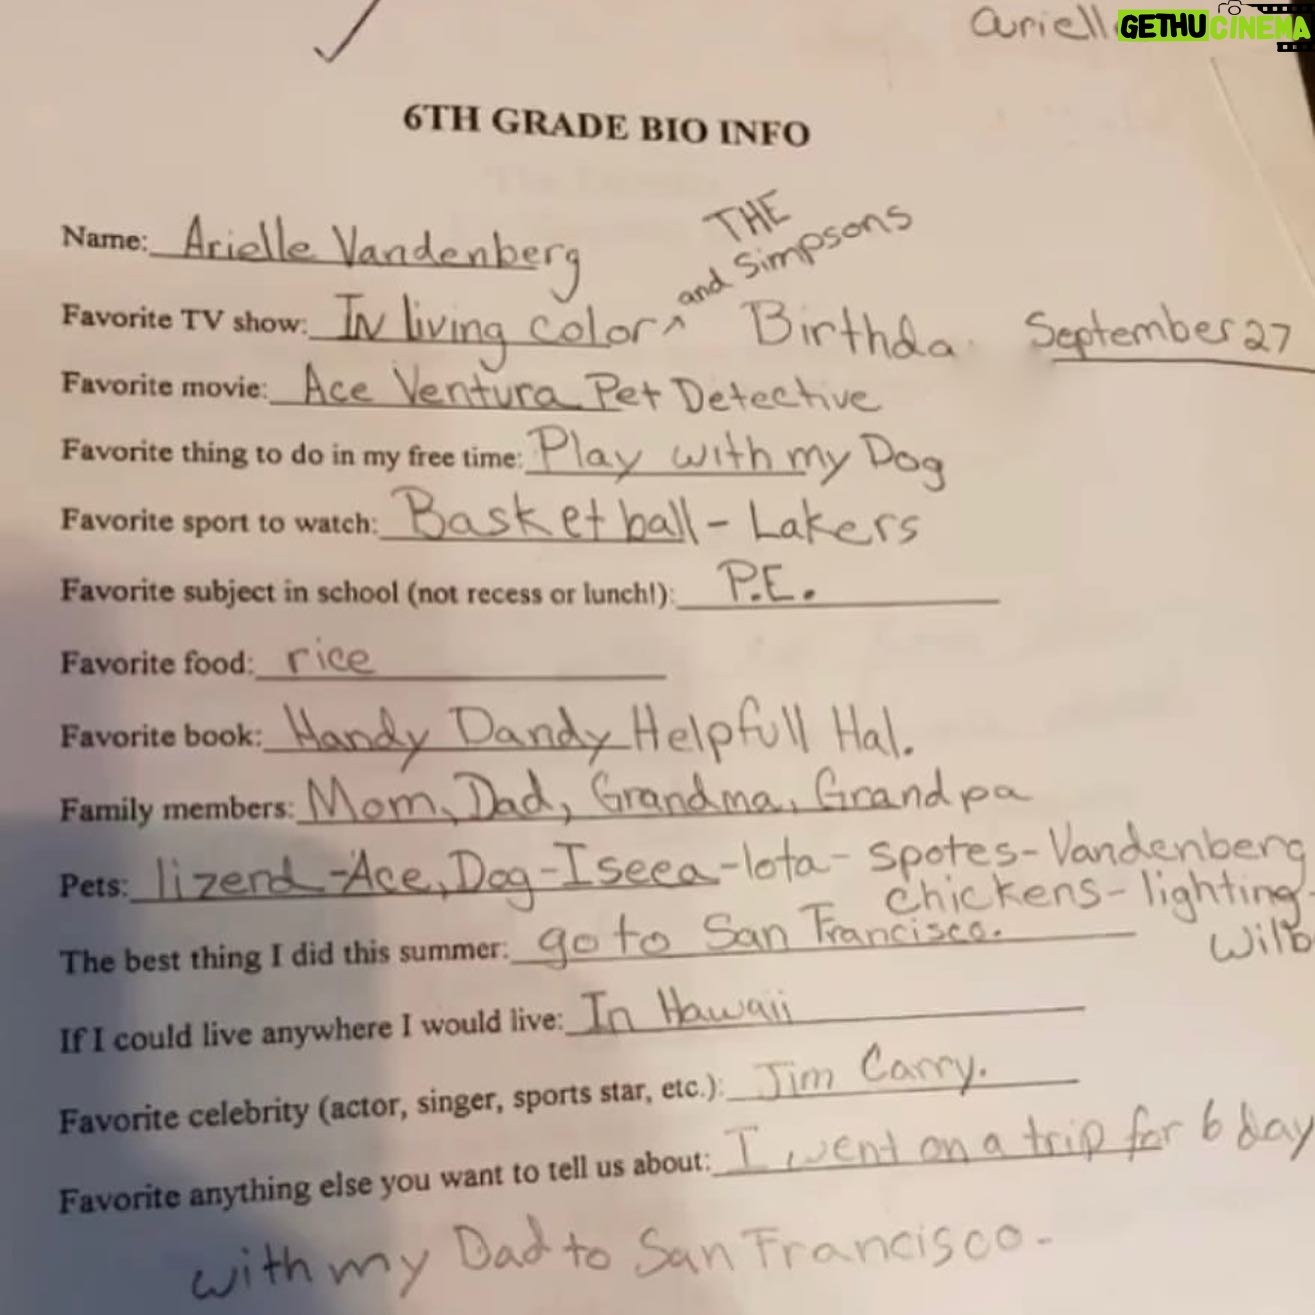 ariell
GETHU CINEMA
6TH GRADE BIO INFO
Name: Arielle Vandenberg
THE
and Simpsons
Favorite TV show: In living color ^ Birthda September 27
Favorite movie: Ace Ventura Pet Detective
Favorite thing to do in my free time: Play with my Dog
Favorite sport to watch: Basketball - Lakers
Favorite subject in school (not recess or lunch!): P.E.
Favorite food: rice
Favorite book: Handy Dandy Helpfull Hal.
Family members: Mom, Dad, Grandma, Grandpa
Pets: lizerd - Ace, Dog - Iseea - lota - spotes - Vandenberg
chickens - lighting -
Wilb
The best thing I did this summer: go to San Francisco.
If I could live anywhere I would live: In Hawaii
Favorite celebrity (actor, singer, sports star, etc.): Jim Carry.
Favorite anything else you want to tell us about: I went on a trip for 6 day
with my Dad to San Francisco.